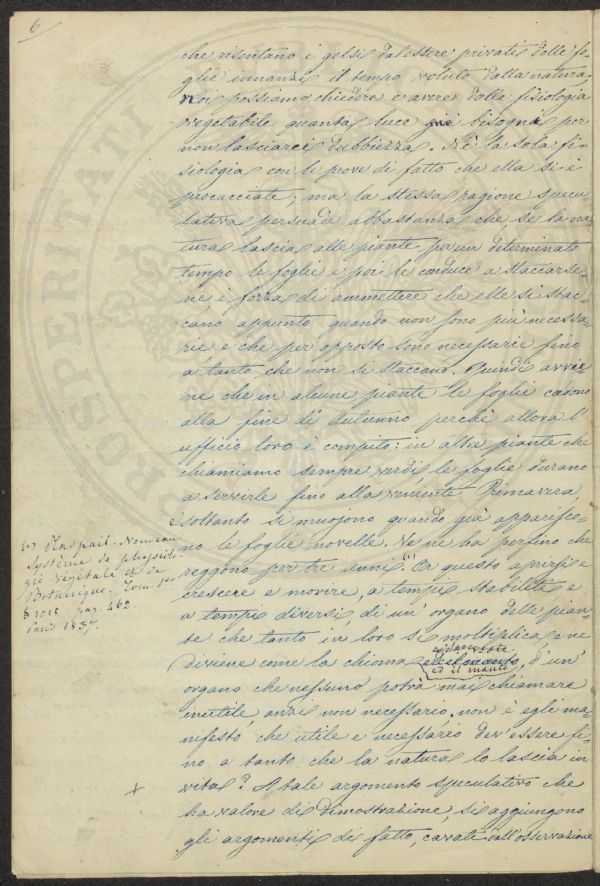 6
che risentano i gelsi dal essere privati delle fo-
glie innanzi il tempo voluto dalla natura,
noi possiamo chiedere e avere dalla fisiologia
vegetabile quanta luce più bisogni per
non lasciarci dubbiezza. Nè la sola fi-
siologia con le prove di fatto che ella si è
procacciate, ma la stessa ragione specu-
lativa persuade abbastanza che se la na-
tura lascia alle piante per un determinato
tempo le foglie e poi le conduce a staccarse-
ne è forza di ammettere che elle si stac-
cano appunto quando non sono più necessa-
rie e che per opposto sono necessarie fino
a tanto che non si staccano. Quindi avvie-
ne che in alcune piante le foglie cadono
alla fine di Autunno perchè allora l'
ufficio loro è compito: in altre piante che
chiamiamo sempre verdi le foglie durano
a servirle fino alla veniente Primavera,
e soltanto si muojono quando già apparisco-
no le foglie novelle. Ve ne ha perfino che
reggono per tre anni.(1) Or questo aprirsi e
crescere e movere, a tempi stabiliti e
a tempi diversi di un' organo delle pian-
te che tanto in loro si moltiplica e ne
diviene come la chioma
ed il manto, d'un'
organo che nessuno potrà mai chiamare
inutile, anzi non necessario, non è egli ma-
nifesto che utile e necessario dev'essere fi-
no a tanto che la natura lo lascia in
vita? A tale argomento speculativo che
ha valore di dimostrazione, si aggiungono
gli argomenti di fatto, cavati dall'osservazione
(1) Raspail. Nouveau
Système de physiolo-
gie végétale et de
Botanique. Tom. pr.
pag. 462.
Paris 1837.
+